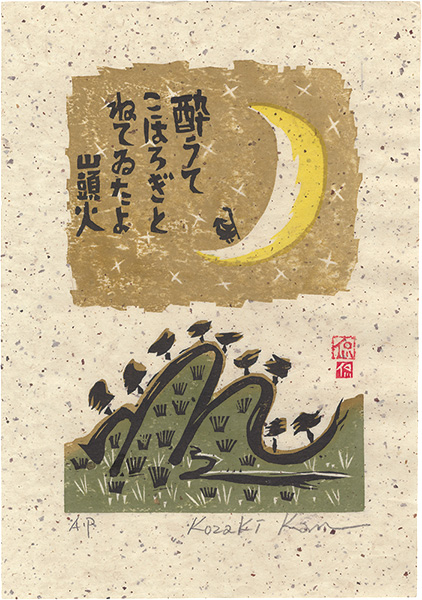 酔うて
こほろぎと
ねてゐたよ
山頭火
A.P.
Kozaki Kan